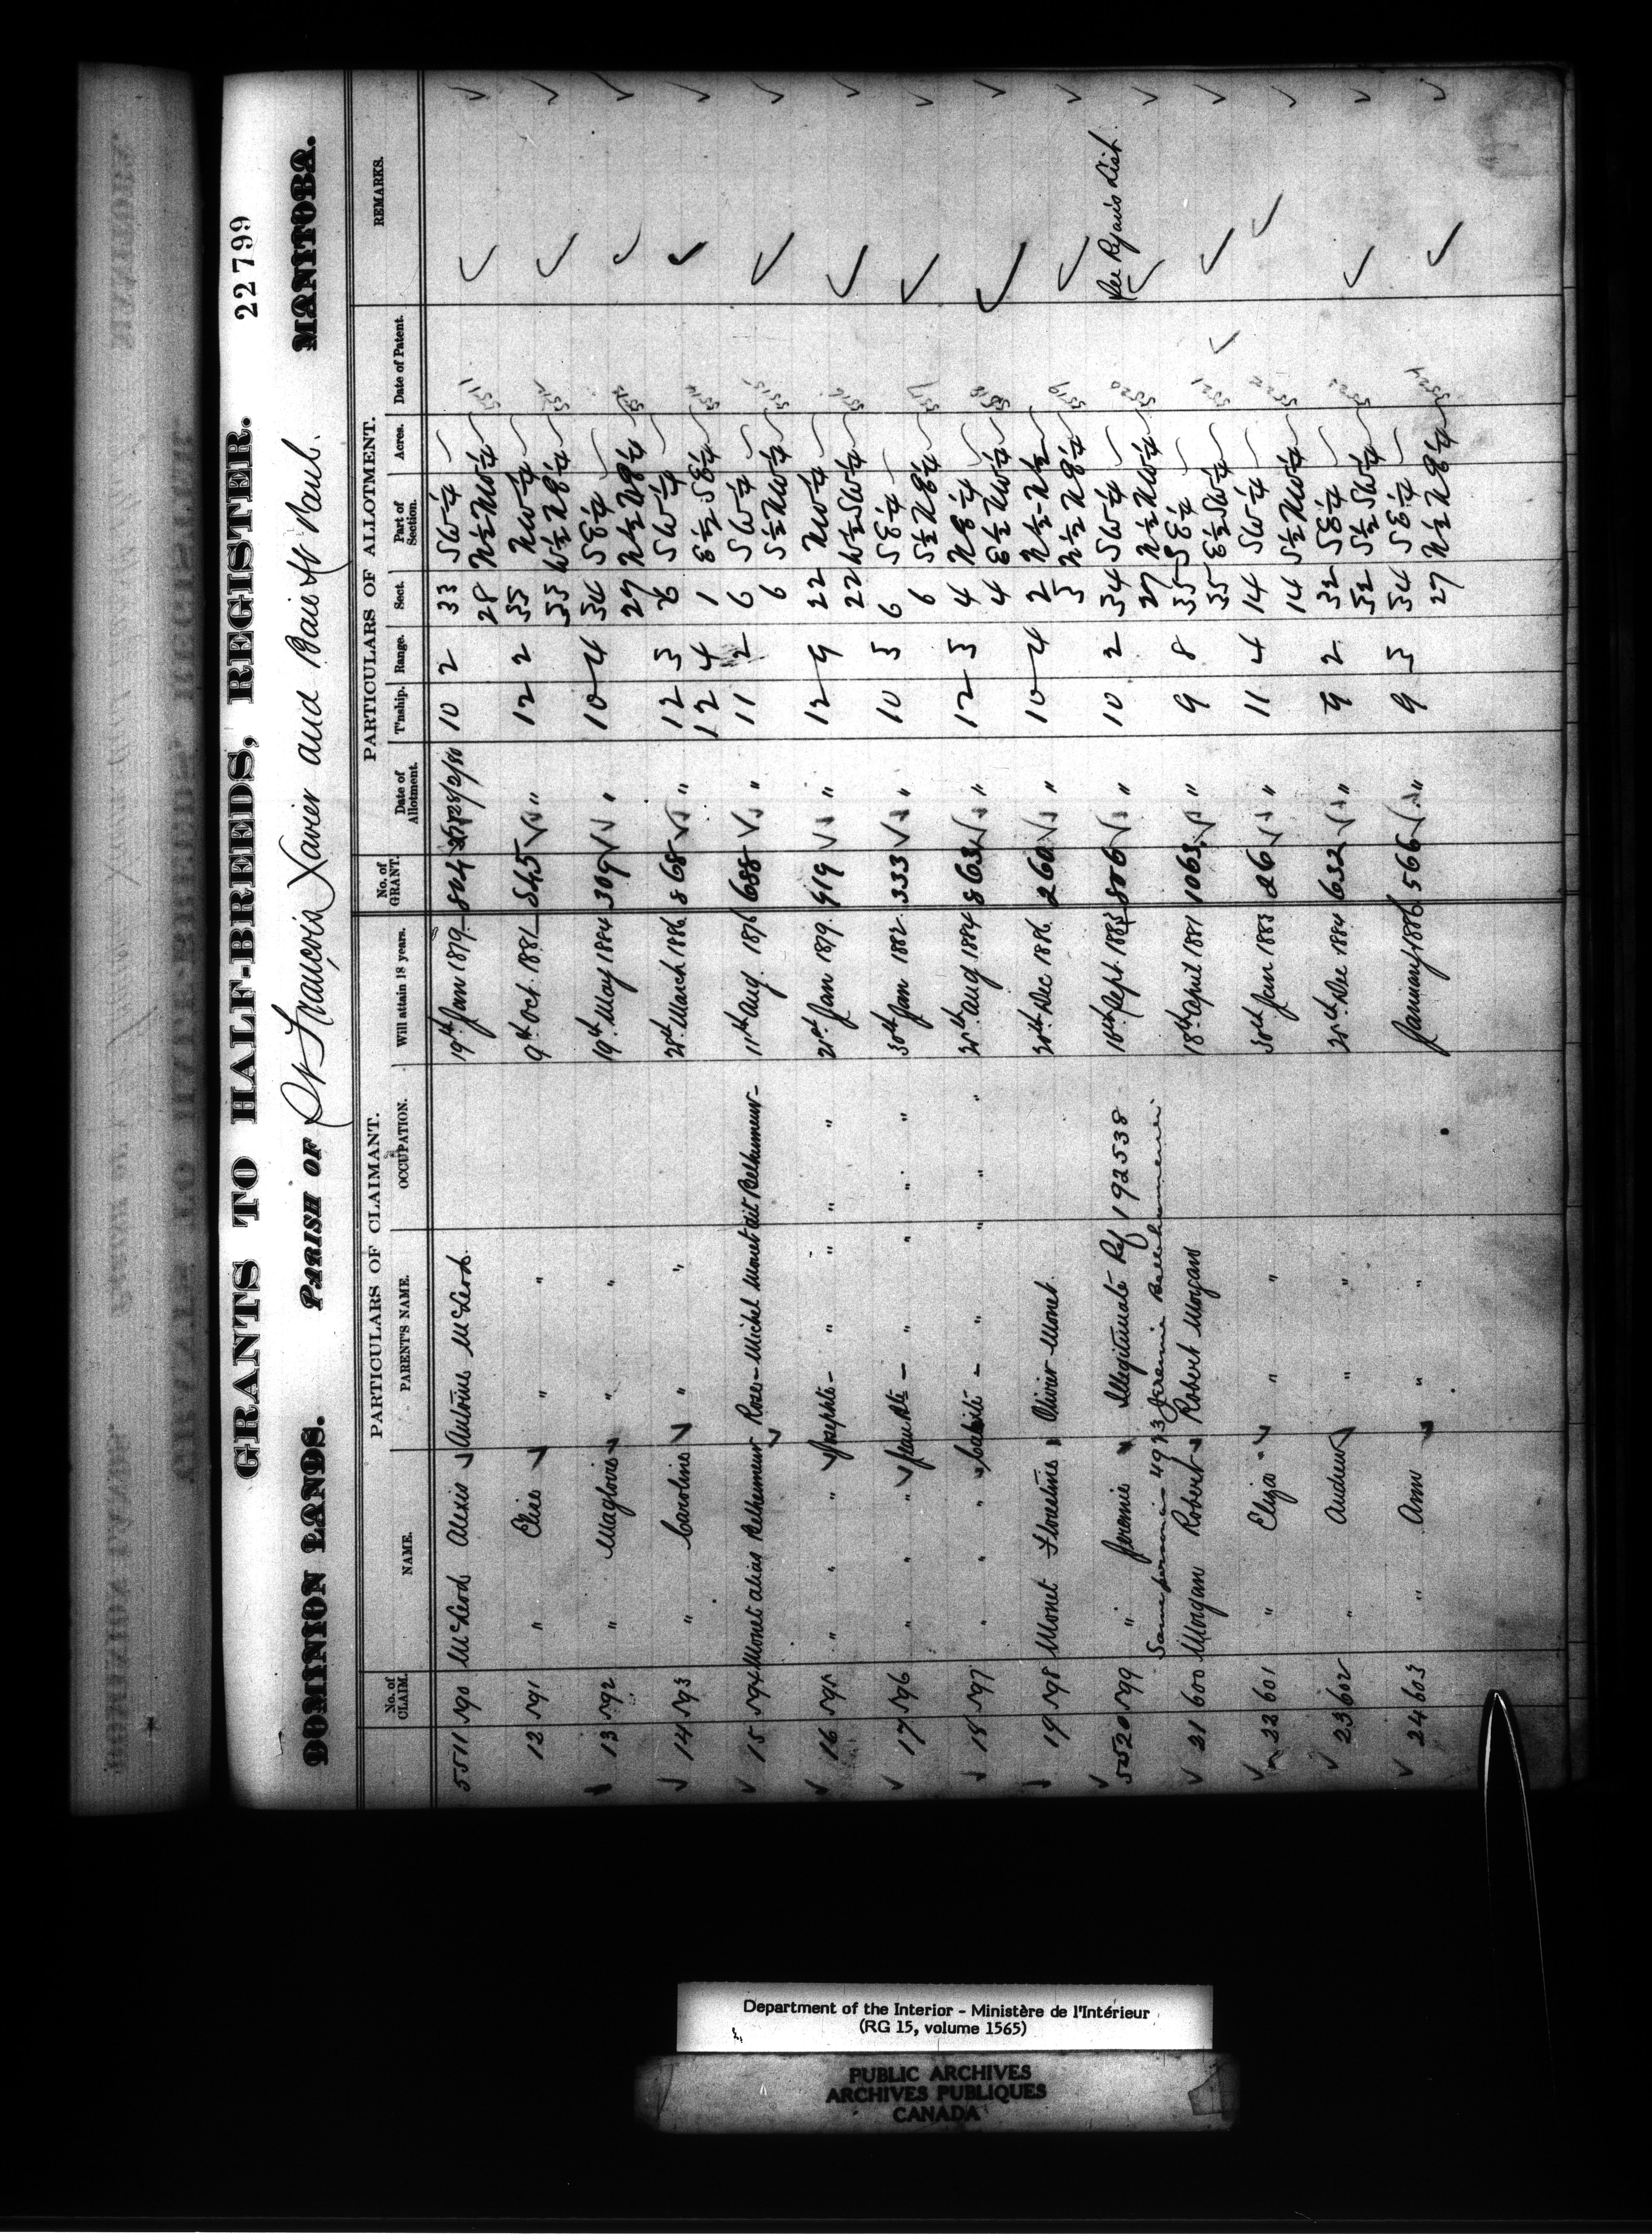 GRANTS TO HALF-BREEDS, REGISTER. 22799
DOMINION LANDS. PARISH OF St François Xavier and Baie St Paul. MANITOBA.
PARTICULARS OF CLAIMANT. PARTICULARS OF ALLOTMENT.
No. of CLAIM. NAME. PARENT'S NAME. OCCUPATION. Will attain 18 years. No. of GRANT. Date of Allotment. T'nship. Range. Sect. Part of Section. Acres. Date of Patent. REMARKS.
5511 590 McLeod Alexis Antoine McLeod. 19th Jan 1879 844 10 2 33 SW¼ 5511
28 N½ NW¼
12 591 " Elise " " 9th Oct. 1881 545 " 12 2 35 NW¼
33 W½ NE¼
13 592 " Magloire " " 19th May 1884 309 " 10 4 34 SE¼
27 N½ NE¼
14 593 " Caroline " " March 1886 868 " 12 3 26 SW¼ 5514
12 4 1 E½ SE¼
15 594 Monet alias Belhumeur Rose - Michel Monet dit Belhumeur - 11th Aug. 1876 688 " 11 2 6 SW¼ 5515
6 S½ NW¼
16 595 " " " Josephte - " " " " 21st Jan 1879. 919 " 12 9 22 NW¼ 5516
22 W½ SW¼
17 596 " " " - " " " " 30th Jan 1882 333 " 10 3 6 SE¼ 5517
6 S½ NE¼
18 597 " " " - " " " " Aug 1884 863 " 12 3 4 NE¼ 5518
4 E½ NW¼
19 598 Monet Olivier Monet. Dec 1886. 260 " 10 4 2 N½ N½ 5519
3 N½ NE¼
5520 599 " Jeremie Illegitimate Ref 192538 Sept. 806 " 10 2 34 SW¼ 5520
27 N½ NW¼
Same person 4973 Jeremie
21 600 Morgan Robert Robert Morgan 18th April 1881 1063 " 9 8 35 SE¼ 5521
35 E½ SW¼
22 601 " Eliza " " 30th Jan 1883 26 " 11 4 14 SW¼
14 S½ NW¼
23 602 " Andrew " " Dec 1884 632 " 9 2 32 SE¼
32 S½ SW¼
24 603 " Ann " " January 1886. 566 " 9 3 34 SE¼ 5524
27 N½ NE¼
Department of the Interior - Ministère de l'Intérieur
(RG 15, volume 1565)
PUBLIC ARCHIVES
ARCHIVES PUBLIQUES
CANADA